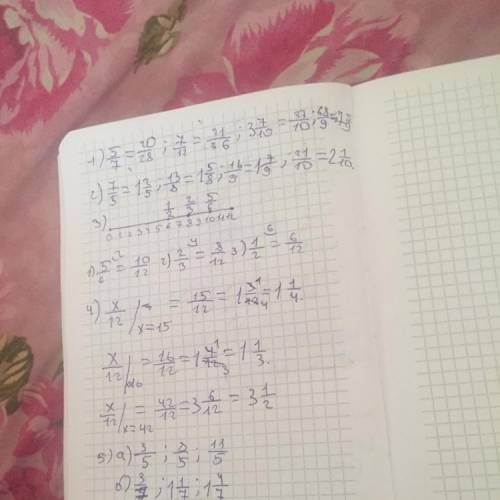 1) 5/7 = 20/28; 7/12 = 21/36; 3 7/10 = 37/10; 68/9 = 7 5/9
2) 7/5 = 1 2/5; 13/8 = 1 5/8; 16/9 = 1 7/9; 21/10 = 2 1/10.
3) 1/2 2/3 5/6
0 1 2 3 4 5 6 7 8 9 10 11 12
1) 5/6 = 10/12 2) 2/3 = 8/12 3) 1/2 = 6/12
4) x/12 / x=15 = 15/12 = 1 3/12 = 1 1/4.
x/12 / = 16/12 = 1 4/12 = 1 1/3.
x/12 / x=42 = 42/12 = 3 6/12 = 3 1/2
5) а) 3/5; /5; 11/5
б) 3/7; 1 1/7; 1 4/7